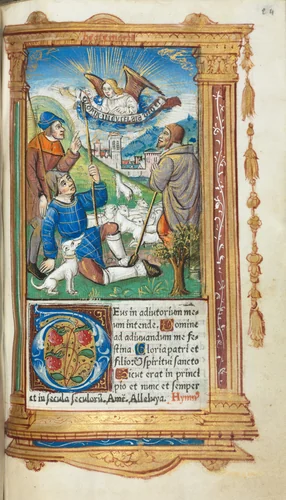 GLORIA IN EXCELSIS DEO
DEus in adiutorium me
um intende. Domine
ad adiuuandum me fe
stina Gloria patri et
filio: & spiritui sancto
Sicut erat in princi
pio et nunc et semper
et in secula seculorũ. Amẽ. Alleluya. Hymnꝰ